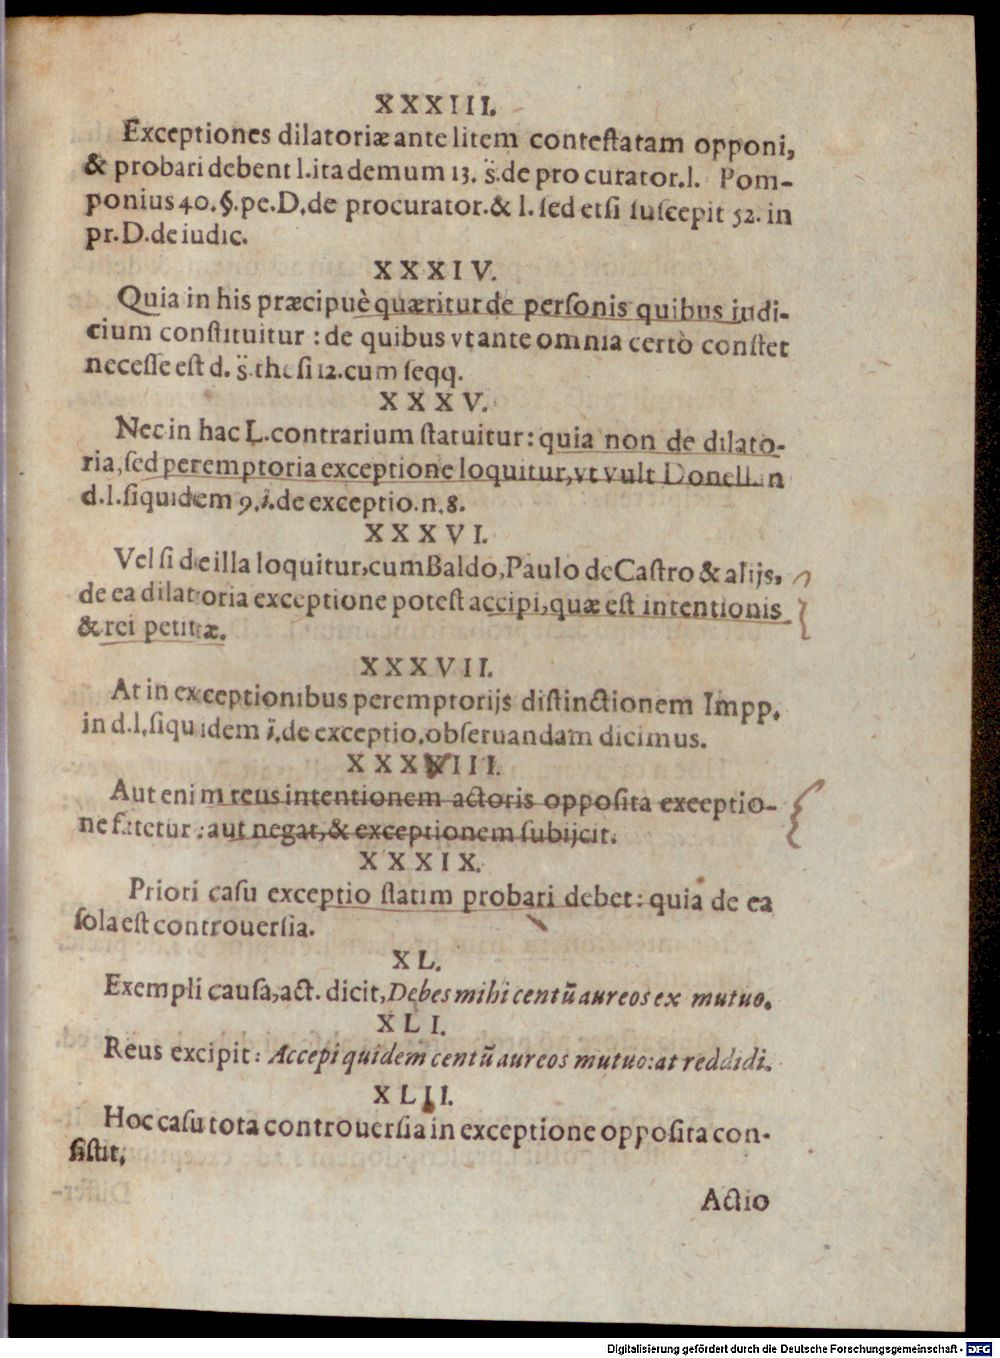 XXXIII.
Exceptiones dilatoriæ ante litem contestatam opponi,
& probari debent l. ita demum 13. s̈. de procurator. l. Pom-
ponius 40. §. pe. D. de procurator. & l. sed etsi suscepit 52. in
pr. D. de iudic.
XXXIV.
Quia in his præcipuè quæritur de personis quibus iudi-
cium constituitur : de quibus vt ante omnia certò constet
necesse est d. s̈. thesi 12. cum seqq.
XXXV.
Nec in hac L. contrarium statuitur: quia non de dilato-
ria, sed peremptoria exceptione loquitur, vt vult Donell. in
d. l. siquidem 9. i. de exceptio. n. 8.
XXXVI.
Vel si de illa loquitur, cum Baldo, Paulo de Castro & alijs,
de ea dilatoria exceptione potest accipi, quæ est intentionis
& rei petitæ.
XXXVII.
At in exceptionibus peremptorijs distinctionem Impp.
in d. l. siquidem ï. de exceptio. obseruandam dicimus.
XXXVIII.
Aut enim reus intentionem actoris opposita exceptio-
ne fatetur : aut negat, & exceptionem subijcit.
XXXIX.
Priori casu exceptio statim probari debet: quia de ea
sola est controuersia.
XL.
Exempli causa, act. dicit, Debes mihi centũ aureos ex mutuo.
XLI.
Reus excipit: Accepi quidem centũ aureos mutuo: at reddidi.
XLII.
Hoc casu tota controuersia in exceptione opposita con-
sistit.
Actio
Digitalisierung gefördert durch die Deutsche Forschungsgemeinschaft - DFG